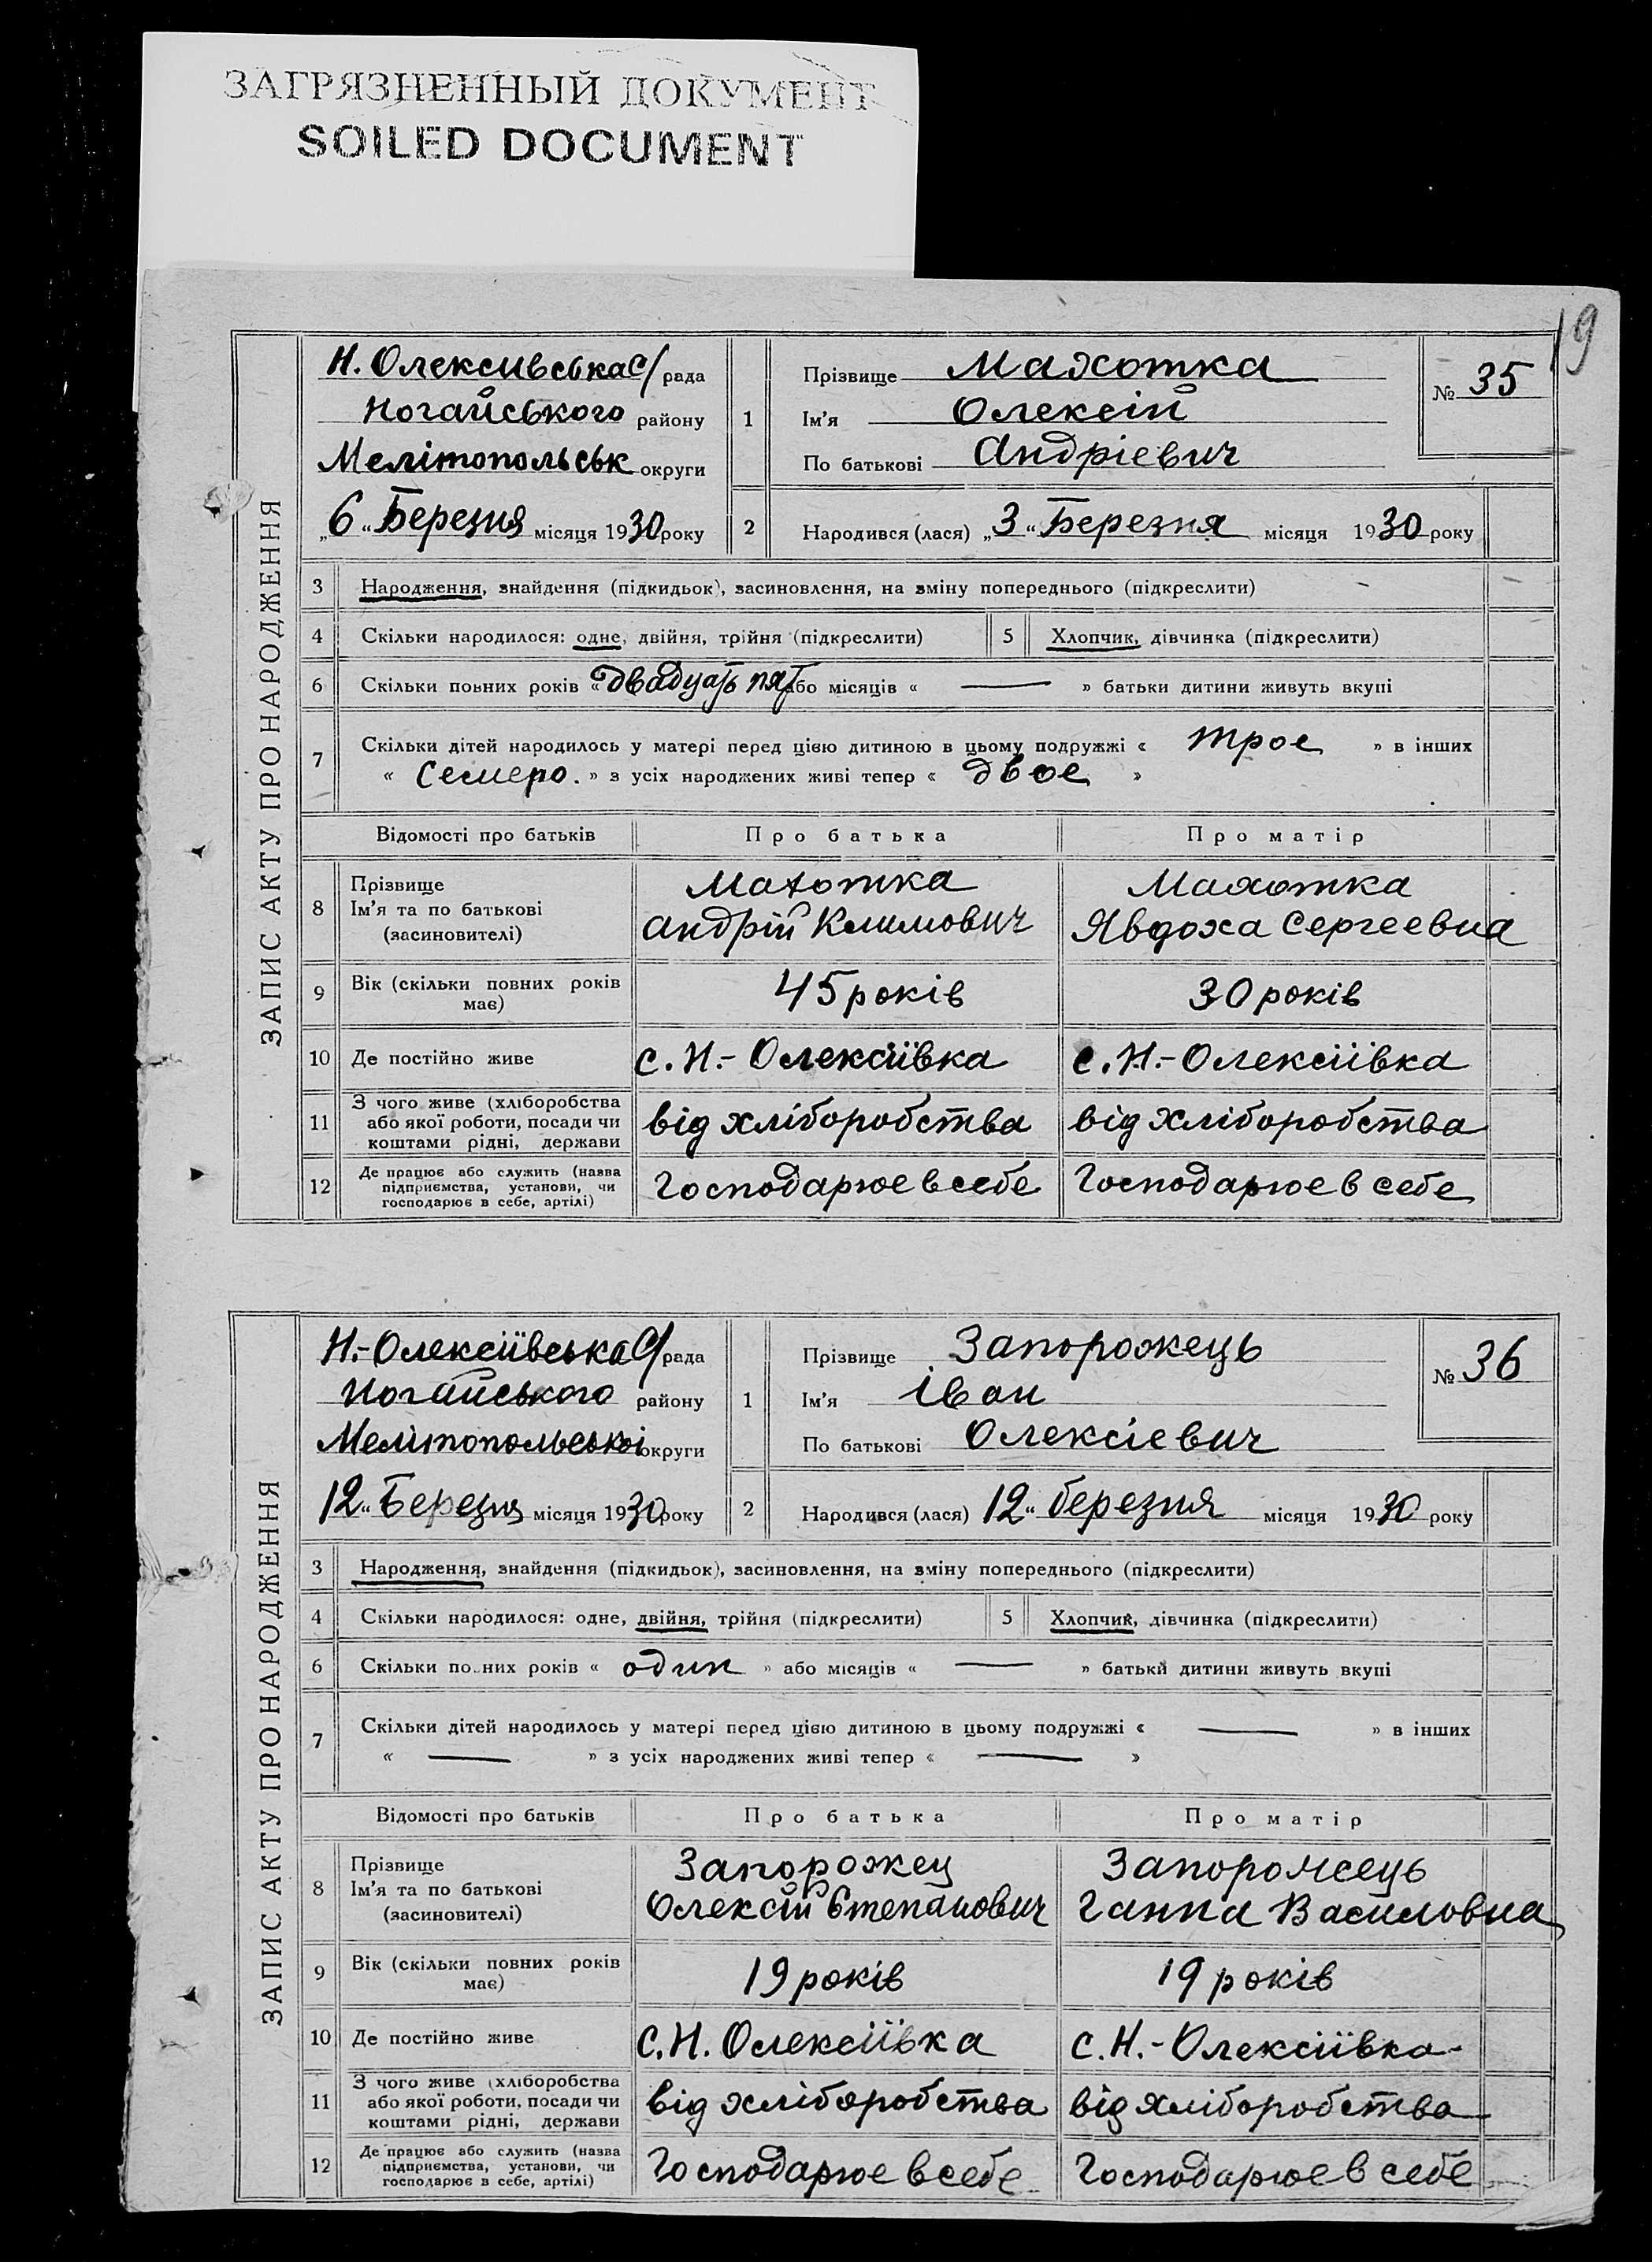 ЗАГРЯЗНЕННЫЙ ДОКУМЕНТ
SOILED DOCUMENT
19
ЗАПИС АКТУ ПРО НАРОДЖЕННЯ
Н. Олексивська с/ рада
Ногайського району
Мелітопольськ округи
„6“ Березня місяця 1930 року
1
Прізвище Махотка
Ім'я Олексій
По батькові Андріевич
№ 35
2 Народився (лася) „3“ Березня місяця 1930 року
3 Народження, знайдення (підкидьок), засиновлення, на зміну попереднього (підкреслити)
4 Скільки народилося: одне, двійня, трійня (підкреслити) 5 Хлопчик, дівчинка (підкреслити)
6 Скільки повних років « двадцать пят або місяців « — » батьки дитини живуть вкупі
7 Скільки дітей народилось у матері перед цією дитиною в цьому подружжі « трое » в інших
« семеро. » з усіх народжених живі тепер « двое »
Відомості про батьків Про батька Про матір
8 Прізвище Махотка Махотка
Ім'я та по батькові Андрій Климович Явдоха Сергеевна
(засиновителі)
9 Вік (скільки повних років має) 45 років 30 років
10 Де постійно живе с. Н.- Олексіївка с. Н.- Олексіївка
11 З чого живе (хліборобства
або якої роботи, посади чи від хліборобства від хліборобства
коштами рідні, держави
12 Де працює або служить (назва
підприємства, установи, чи Господарюе в себе Господарюе в себе
господарює в себе, артілі)
ЗАПИС АКТУ ПРО НАРОДЖЕННЯ
Н.-Олексіївська с/ рада
Ногайського району
Мелітопольської округи
12“ Березня місяця 1930 року
1
Прізвище Запорожець
Ім'я Іван
По батькові Олексіевич
№ 36
2 Народився (лася) 12“ березня місяця 1930 року
3 Народження, знайдення (підкидьок), засиновлення, на зміну попереднього (підкреслити)
4 Скільки народилося: одне, двійня, трійня (підкреслити) 5 Хлопчик, дівчинка (підкреслити)
6 Скільки повних років « один » або місяців « — » батьки дитини живуть вкупі
7 Скільки дітей народилось у матері перед цією дитиною в цьому подружжі « — » в інших
« — » з усіх народжених живі тепер « — »
Відомості про батьків Про батька Про матір
8 Прізвище Запорожец Запорожець
Ім'я та по батькові Олексій Степанович Ганна Василовна
(засиновителі)
9 Вік (скільки повних років має) 19 років 19 років
10 Де постійно живе с. Н. Олексіївка с. Н.- Олексіївка
11 З чого живе (хліборобства
або якої роботи, посади чи від хліборобства від хліборобства
коштами рідні, держави
12 Де працює або служить (назва
підприємства, установи, чи Господарюе в себе Господарюе в себе
господарює в себе, артілі)